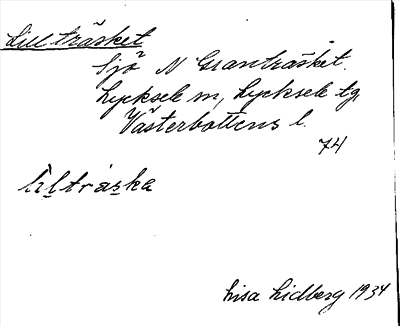 Lillträsket
Sjö N Granträsket.
Lycksele m, Lycksele tg
Västerbottens l.
74
lìltràska
Lisa Lidberg 1934